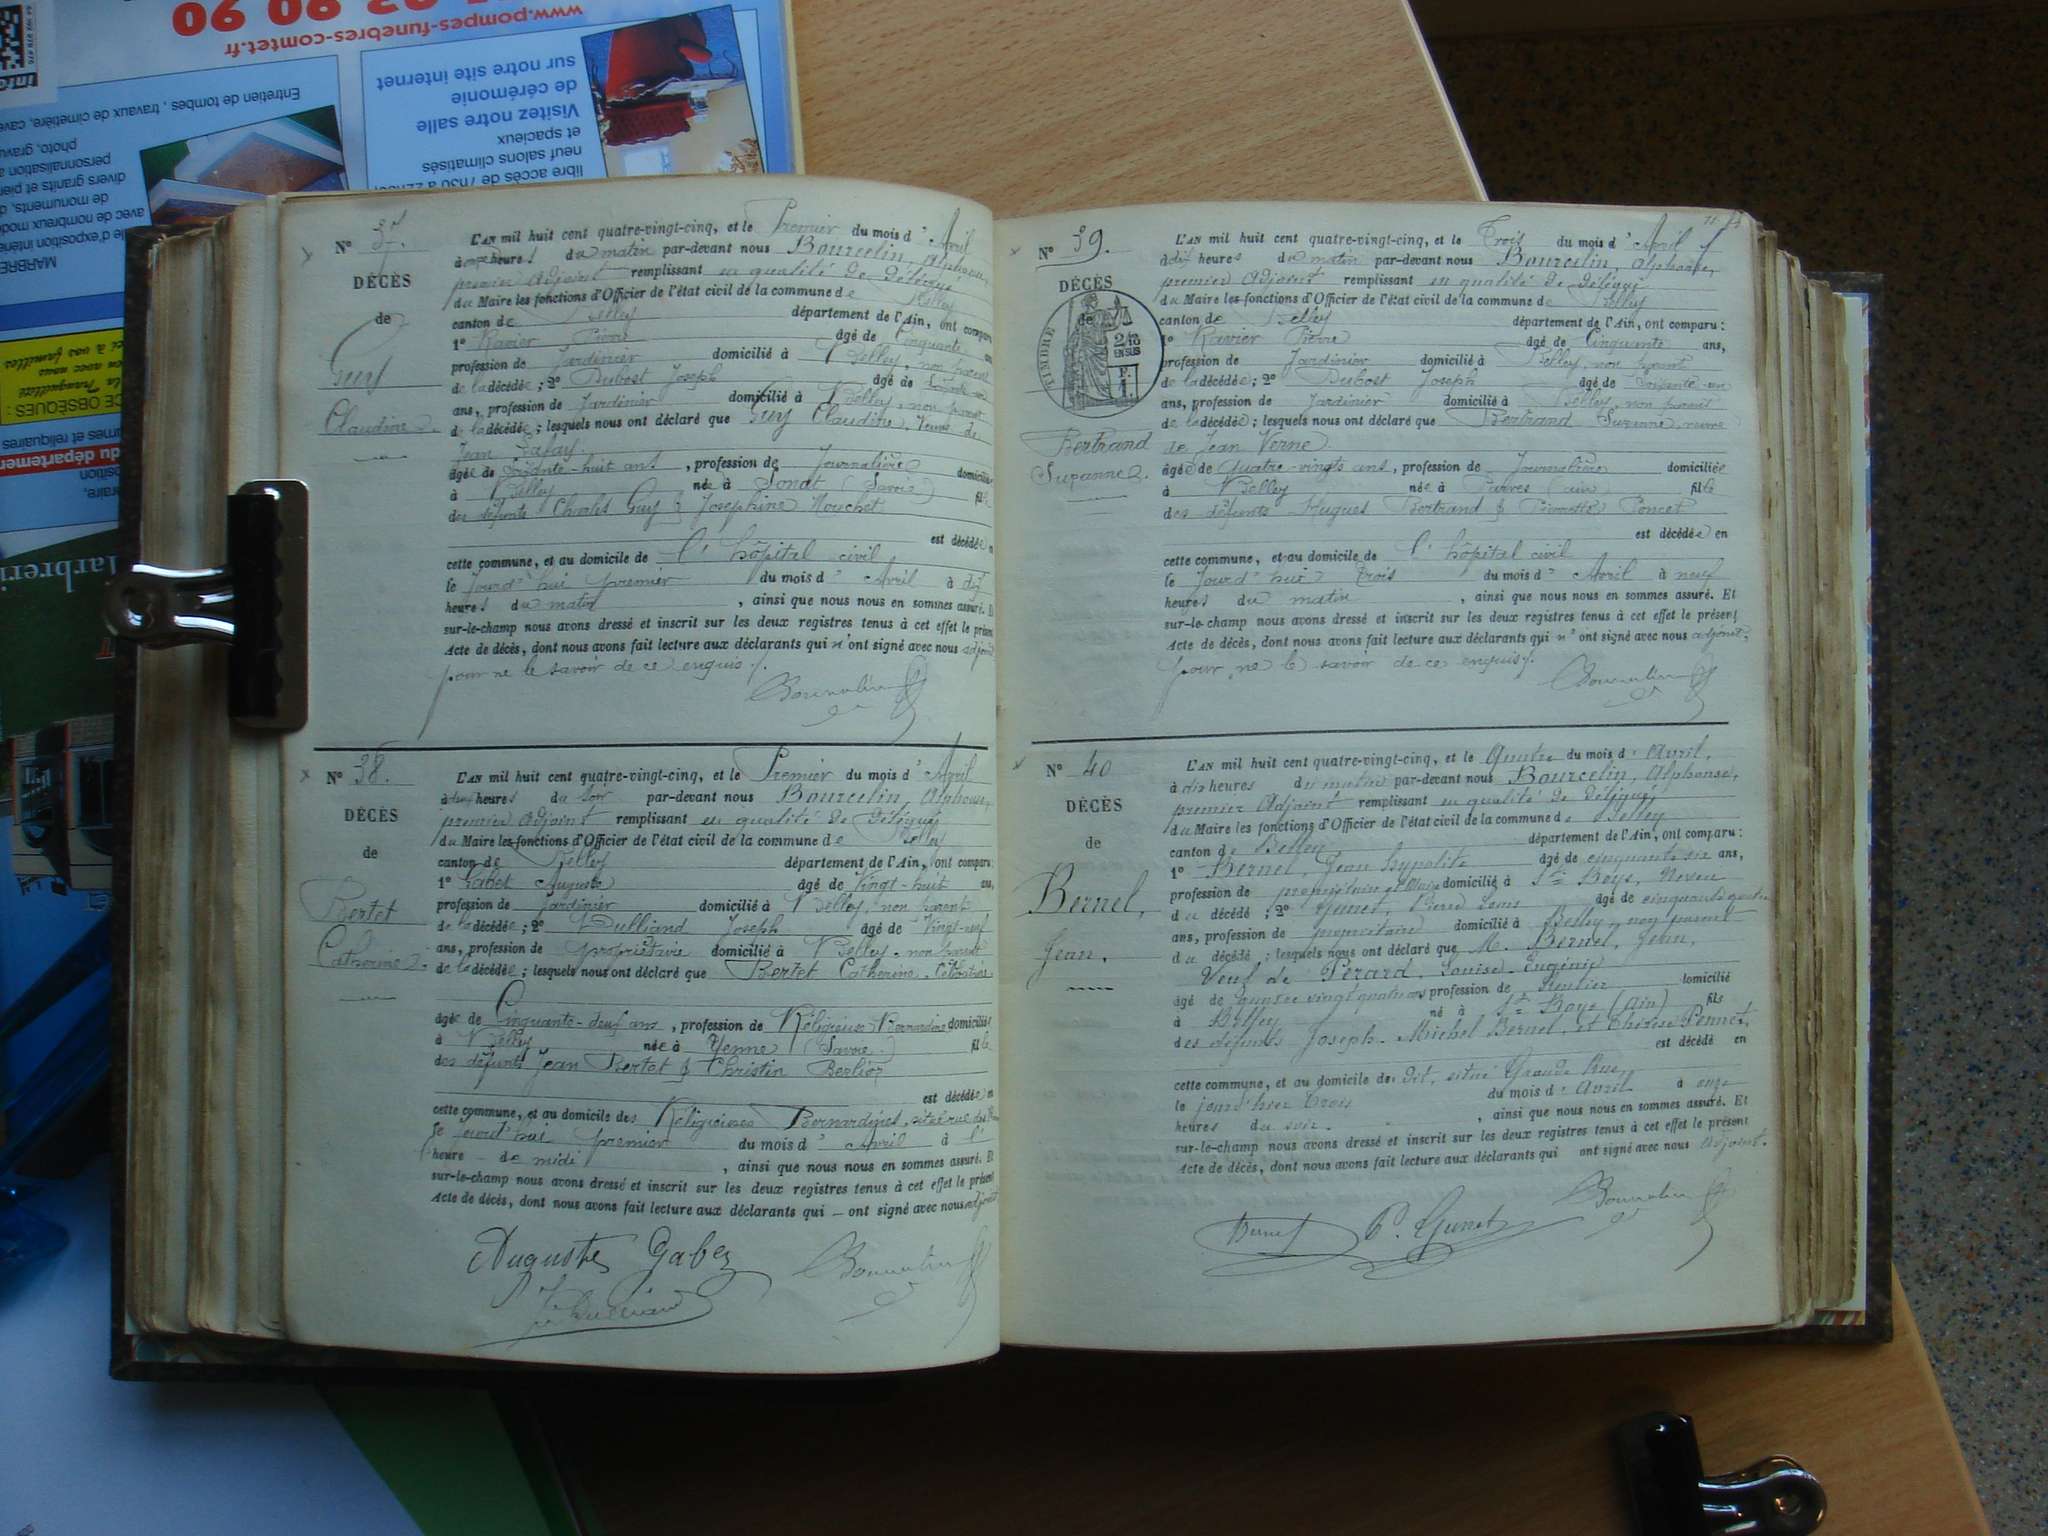 www.pompes-funebres-comtet.fr
Entretien de tombes, travaux de cimetière, cave
libre accès de 7h30 à
neuf salons climatisés
et spacieux
Visitez notre salle
de cérémonie
sur notre site internet
N° 37.
DÉCÈS
de
Guy
Claudine
L'AN mil huit cent quatre-vingt-cinq, et le Premier du mois d' Avril
à heures du matin par-devant nous Bourcelin, Alphonse,
premier Adjoint remplissant en qualité de Délégué
du Maire les fonctions d'Officier de l'état civil de la commune de Belley
canton de Belley département de l'Ain, ont comparu
1° Ravier Pierre âgé de Cinquante ans
profession de Jardinier domicilié à Belley, non parent
de la décédée ; 2° Dubost Joseph âgé de
ans, profession de Jardinier domicilié à Belley, non parent
de la décédée ; lesquels nous ont déclaré que Guy Claudine,
Jean
âgée de Soixante-huit ans, profession de Journalière domiciliée
à Belley née à (Savoie) fille
des défunts Charles Guy & Josephine
est décédée en
cette commune, et au domicile de l'hôpital civil
le Jourd'hui premier du mois d' Avril à
heures du matin, ainsi que nous nous en sommes assuré. Et
sur-le-champ nous avons dressé et inscrit sur les deux registres tenus à cet effet le présent
Acte de décès, dont nous avons fait lecture aux déclarants qui n'ont signé avec nous adjoint
pour ne le savoir de ce enquis.
N° 38.
DÉCÈS
de
Bertet
Catherine
L'AN mil huit cent quatre-vingt-cinq, et le Premier du mois d' Avril
à heures du soir par-devant nous Bourcelin, Alphonse,
premier Adjoint remplissant en qualité de Délégué
du Maire les fonctions d'Officier de l'état civil de la commune de Belley
canton de Belley département de l'Ain, ont comparu :
1° Gabet Auguste âgé de Vingt-huit ans,
profession de Jardinier domicilié à Belley, non parent
de la décédée ; 2° Dulliand Joseph âgé de Vingt-neuf
ans, profession de propriétaire domicilié à Belley, non parent
de la décédée ; lesquels nous ont déclaré que Bertet Catherine, Célibataire
âgée de Cinquante-deux ans, profession de Réligieuse Bernardine domiciliée
à Belley née à Yenne (Savoie) fille
des défunts Jean Bertet & Christin Berlioz
est décédée en
cette commune, et au domicile des Réligieuses Bernardines,
le jourd'hui premier du mois d' Avril à l'
heure de midi, ainsi que nous nous en sommes assuré. Et
sur-le-champ nous avons dressé et inscrit sur les deux registres tenus à cet effet le présent
Acte de décès, dont nous avons fait lecture aux déclarants qui — ont signé avec nous adjoint
Auguste Gabet
N° 39.
DÉCÈS
de
TIMBRE
2/10
EN SUS
Bertrand
Suzanne
L'AN mil huit cent quatre-vingt-cinq, et le Trois du mois d' Avril
à dix heures du matin par-devant nous Bourcelin, Alphonse,
premier Adjoint remplissant en qualité de Délégué
du Maire les fonctions d'Officier de l'état civil de la commune de Belley
canton de Belley département de l'Ain, ont comparu :
1° Ravier Pierre âgé de Cinquante ans,
profession de Jardinier domicilié à Belley, non parent
de la décédée ; 2° Dubost Joseph âgé de Soixante-un
ans, profession de Jardinier domicilié à Belley, non parent
de la décédée ; lesquels nous ont déclaré que Bertrand Suzanne, veuve
de Jean Verne
âgée de Quatre-vingts ans, profession de Journalière domiciliée
à Belley née à Parves (ain) fille
des défunts Hugues Bertrand & Pierrette Poncet
est décédée en
cette commune, et au domicile de l'hôpital civil
le Jourd'hui Trois du mois d' Avril à neuf
heures du matin, ainsi que nous nous en sommes assuré. Et
sur-le-champ nous avons dressé et inscrit sur les deux registres tenus à cet effet le présent
Acte de décès, dont nous avons fait lecture aux déclarants qui n'ont signé avec nous adjoint,
pour ne le savoir de ce enquis.
N° 40
DÉCÈS
de
Bernel,
Jean.
L'AN mil huit cent quatre-vingt-cinq, et le Quatre du mois d' Avril,
à dix heures du matin par-devant nous Bourcelin, Alphonse,
premier Adjoint remplissant en qualité de Délégué,
du Maire les fonctions d'Officier de l'état civil de la commune de Belley
canton de Belley département de l'Ain, ont comparu :
1° Bernel, Jean hypolite âgé de cinquante six ans,
profession de propriétaire domicilié à St Boys, Neveu
du décédé ; 2° Pierre Louis âgé de cinquante quatre
ans, profession de propriétaire domicilié à Belley, non parent
du décédé ; lesquels nous ont déclaré que M. Bernel, Jean,
Veuf de Pérard, Louise Eugénie
âgé de quatre vingt quatre ans profession de Rentier domicilié
à Belley né à St Boys (Ain) fils
des défunts Joseph-Michel Bernel, et Thérèse Pennet,
est décédé en
cette commune, et au domicile de: dit, situé Grande Rue,
le jour d'hier trois du mois d' Avril à onze
heures du soir., ainsi que nous nous en sommes assuré. Et
sur-le-champ nous avons dressé et inscrit sur les deux registres tenus à cet effet le présent
Acte de décès, dont nous avons fait lecture aux déclarants qui ont signé avec nous adjoint.